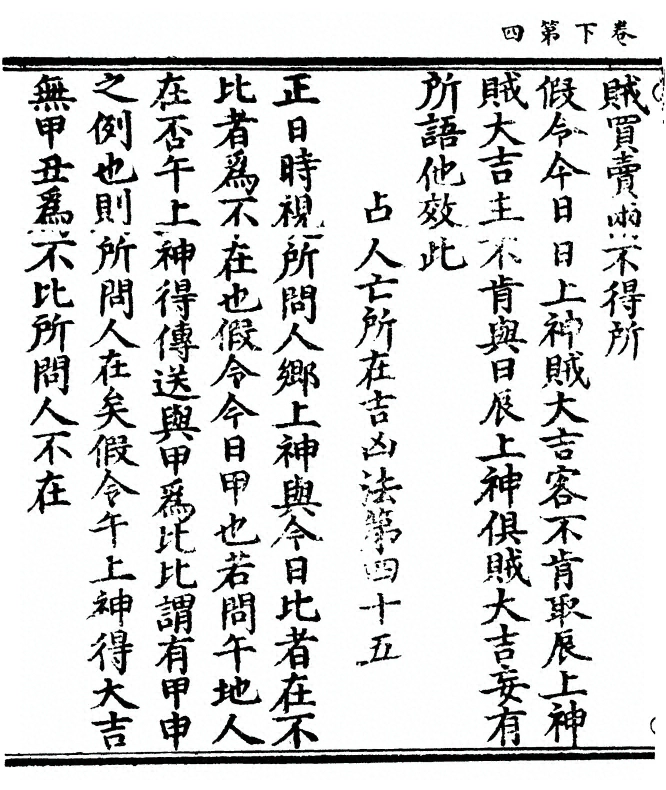 卷下第四
賊買賣兩不得所
假令今日日上神賊大吉客不肯取辰上神
賊大吉主不肯與日辰上神俱賊大吉妄有
所語他效此
占人亡所在吉凶法第四十五
正日時視所問人鄉上神與今日比者在不
比者爲不在也假令今日甲也若問午地人
在否午上神得傳送與甲爲比比謂有甲申
之例也則所問人在矣假令午上神得大吉
無甲丑爲不比所問人不在